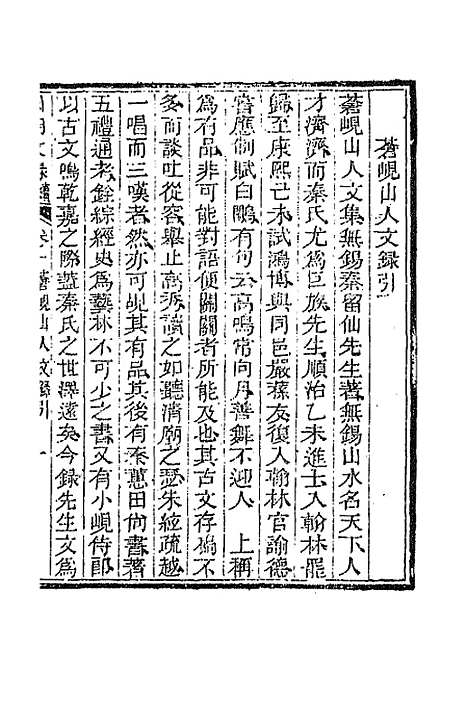 蒼峴山人文録引
蒼峴山人文集無錫秦留仙先生著無錫山水名天下人
才濟濟而秦氏尤爲邑族先生順治乙未進士入翰林罷
歸至康熙己未試鴻博與同邑嚴蓀友復入翰林官諭德
嘗應制賦白鷴有句云高鳴常向月善舞不迎人　上稱
爲有品非可能對語便關關者所能及也其古文存稿不
多而談吐從容舉止高派讀之如聽清廟之瑟朱絃疏越
一唱而三嘆者然亦可覘其有品其後有秦蕙田尚書著
五禮通考銓綜經史爲藝林不可少之書又有小峴侍郎
以古文鳴乾嘉之際蓋秦氏之世澤遠矣今録先生文爲
國朝文録續編　卷一蒼峴山人文録引　一